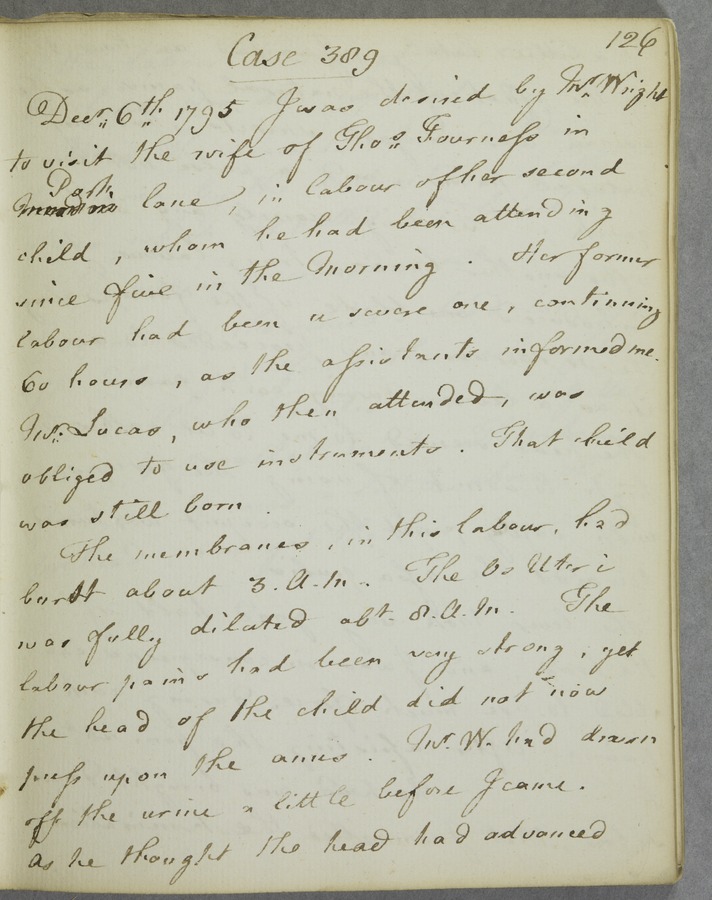 126
Case 389
Decr. 6th. 1795 I was desired by Mr. Wright
to visit the wife of Thos. Fourness in
Park
lane, in labour of her second
child, whom he had been attending
since five in the Morning. Her former
labour had been a severe one, continuing
60 hours, as the assistants informed me.
Mr. Lucas, who then attended, was
obliged to use instruments. That child
was still born.
The membranes, in this labour, had
burst about 3. A.M. The Os Uteri
was fully dilated abt. 8. A.M. The
labour pains had been very strong, yet
the head of the child did not now
press upon the anus. Mr. W. had drawn
off the urine a little before I came.
As he thought the head had advanced